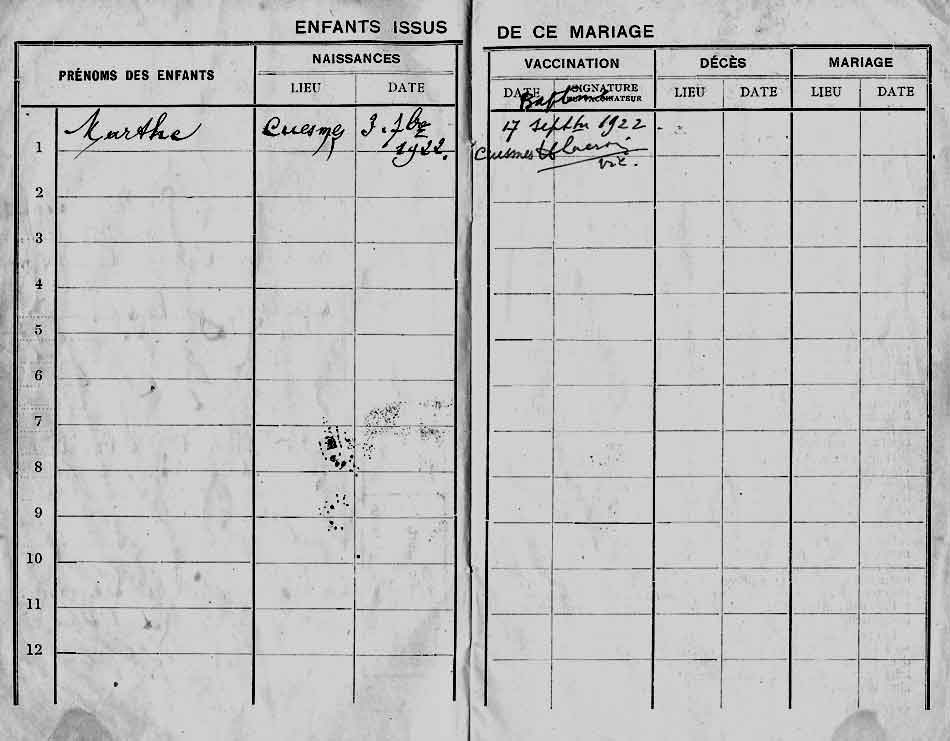 ENFANTS ISSUS DE CE MARIAGE
PRÉNOMS DES ENFANTS
NAISSANCES
LIEU DATE
VACCINATION
DATE SIGNATURE
DU VACCINATEUR
Baptême
DÉCÈS
LIEU DATE
MARIAGE
LIEU DATE
1 Marthe Cuesmes 3. 7bre
1922.
17 septbre 1922.
Cuesmes
vic.
2
3
4
5
6
7
8
9
10
11
12